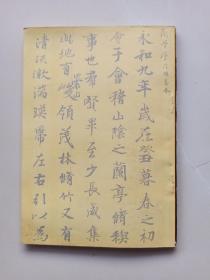 永和九年歲在癸丑暮春之初
會于會稽山陰之蘭亭脩稧
事也羣賢畢至少長咸集
此地有崇山峻領茂林脩竹又有
清流激湍暎帶左右引以為